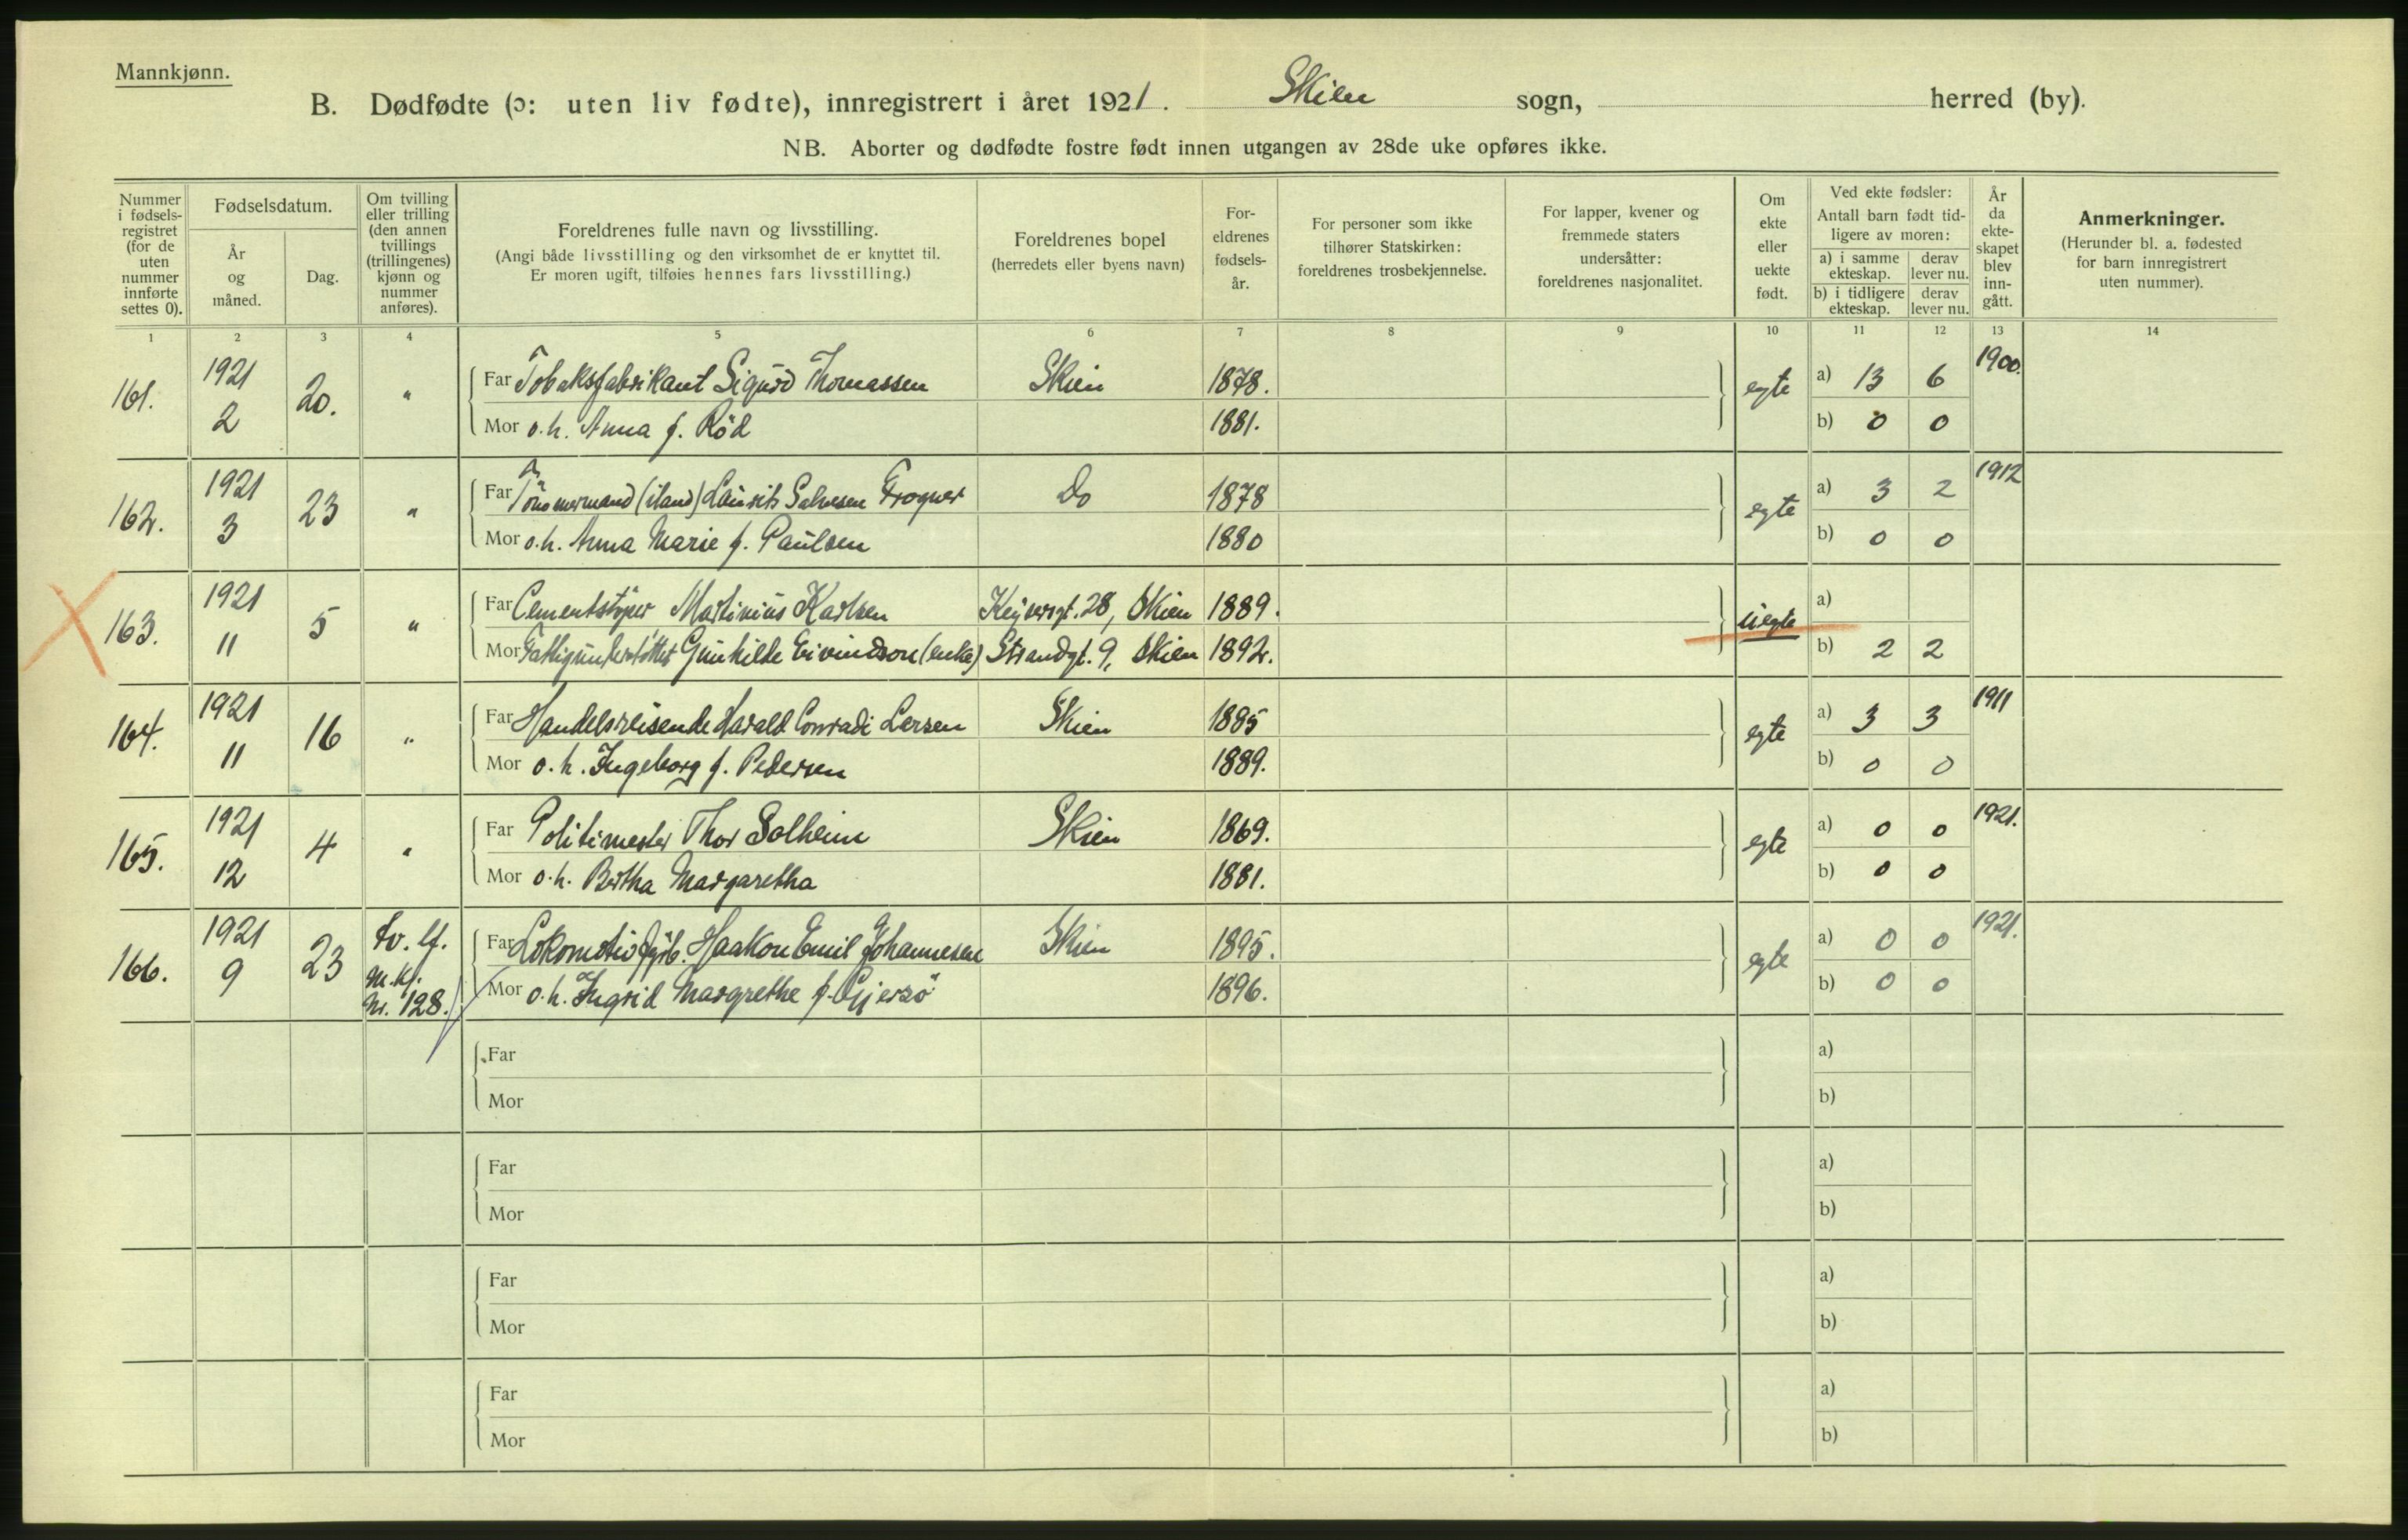 Mannkjønn.
B. Dødfødte (ɔ: uten liv fødte), innregistrert i året 1921. Skien sogn, herred (by).
NB. Aborter og dødfødte fostre født innen utgangen av 28de uke opføres ikke.
Nummer i fødsels-registret (for de uten nummer innførte settes 0).
Fødselsdatum.
År og måned.
Dag.
Om tvilling eller trilling (den annen tvillings (trillingenes) kjønn og nummer anføres).
Foreldrenes fulle navn og livsstilling.
(Angi både livsstilling og den virksomhet de er knyttet til.
Er moren ugift, tilføies hennes fars livsstilling.)
Foreldrenes bopel
(herredets eller byens navn)
For-eldrenes fødsels-år.
For personer som ikke tilhører Statskirken: foreldrenes trosbekjennelse.
For lapper, kvener og fremmede staters undersåtter: foreldrenes nasjonalitet.
Om ekte eller uekte født.
Ved ekte fødsler:
Antall barn født tid-ligere av moren:
a) i samme ekteskap. derav lever nu.
b) i tidligere ekteskap. derav lever nu.
År da ekte-skapet blev inn-gått.
Anmerkninger.
(Herunder bl. a. fødested for barn innregistrert uten nummer).
1 2 3 4 5 6 7 8 9 10 11 12 13 14
161. 1921 2 20. " Far Tobaksfabrikant Sigurd Thomassen Skien 1878. egte a) 13 6 1900.
Mor o.h. Anna f. Röd 1881. b) 0 0
162. 1921 3 23 " Far Tömmermand (iland) Laurits Salvesen Frogner Do 1878 egte a) 3 2 1912
Mor o.h. Anna Marie f. Paulsen 1880 b) 0 0
163. 1921 11 5 " Far Cementstöper Martinius Karlsen Keysersgt. 28, Skien 1889. uegte a)
Mor Fattigunderstöttet Gunhilde Eivindson (enke) Strandgt. 9, Skien 1892. b) 2 2
164. 1921 11 16 " Far Handelsreisende Harald Conradi Larsen Skien 1885 egte a) 3 3 1911
Mor o.h. Ingeborg f. Pedersen 1889. b) 0 0
165. 1921 12 4 " Far Politimester Thor Solheim Skien 1869. egte a) 0 0 1921.
Mor o.h. Bertha Margaretha 1881. b) 0 0
166. 1921 9 23 tv. lf. m.kj. nr. 128. Far Lokomotivfyrb. Haakon Emil Johannesen Skien 1895. egte a) 0 0 1921.
Mor o.h. Ingrid Margrethe f. Gjersö 1896. b) 0 0
Far a)
Mor b)
Far a)
Mor b)
Far a)
Mor b)
Far a)
Mor b)